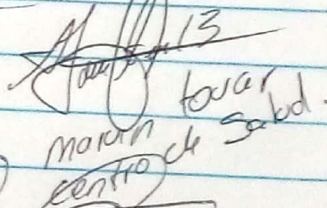 13
marvin tovar
centro de Salud.